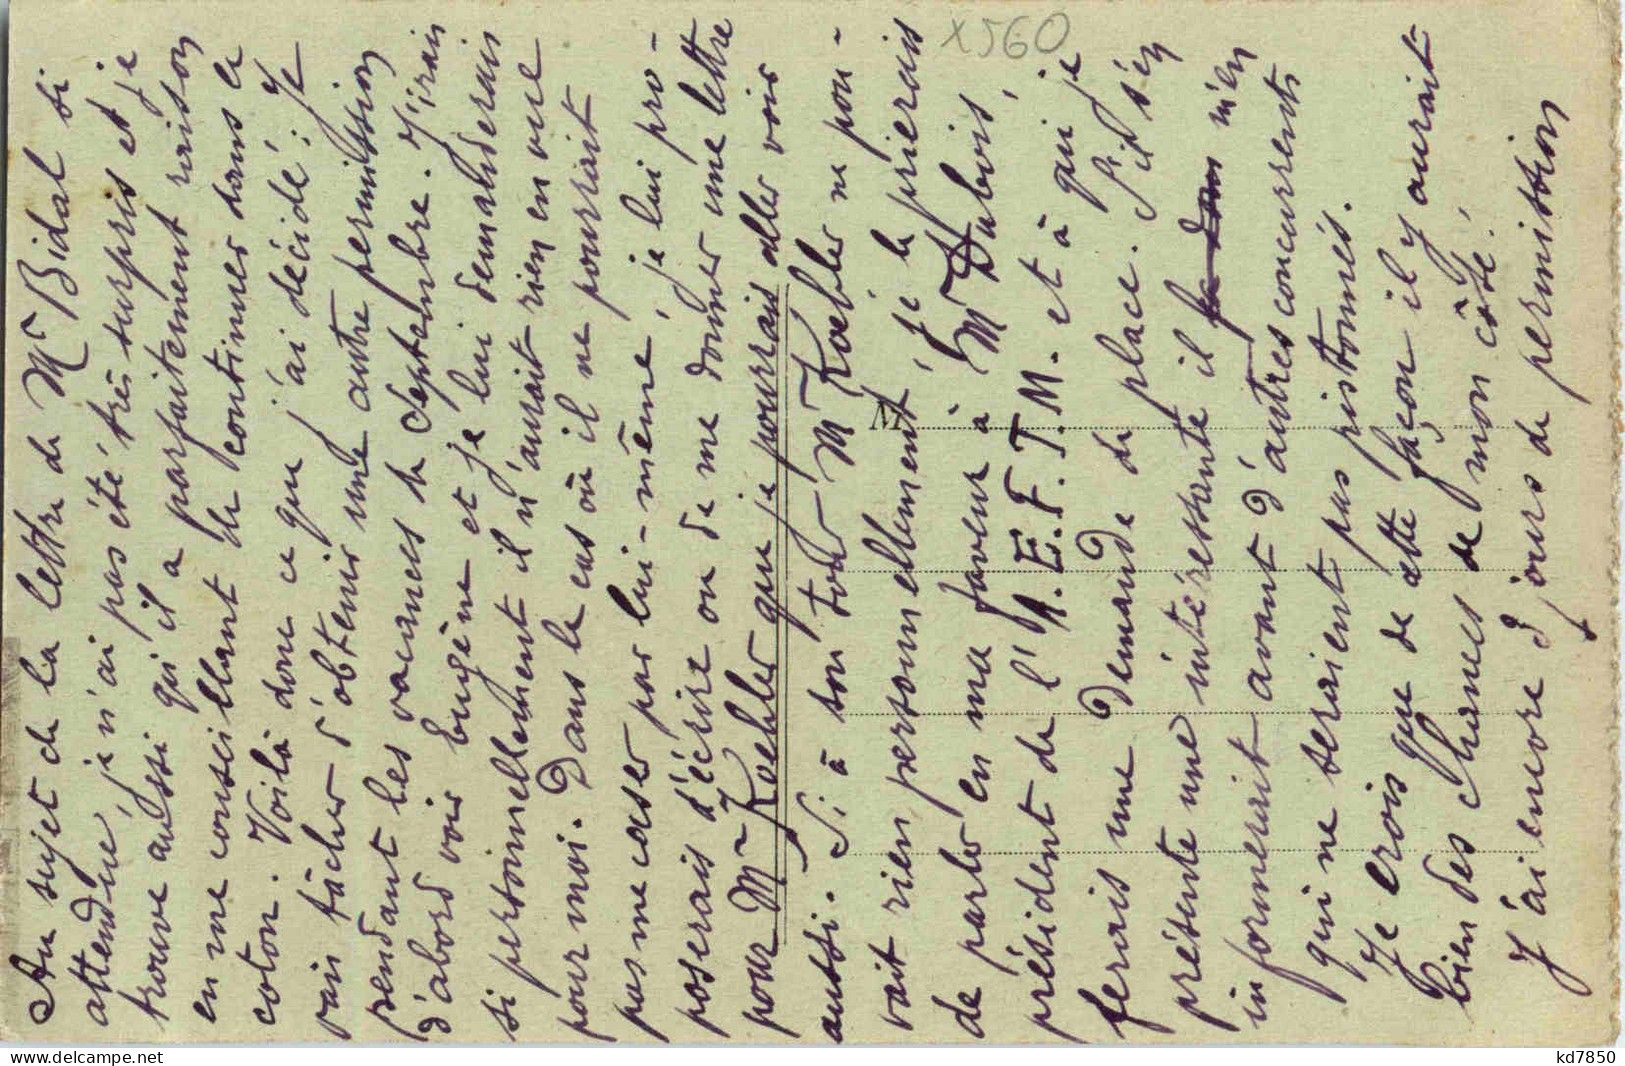 Au sujet de la lettre de Mr Bidal si
attendue, je n'ai pas été très surpris et je
trouve aussi qu'il a parfaitement raison
en me conseillant de continuer dans le
coton. Voilà donc ce que j'ai décidé : Je
vais tâcher d'obtenir une autre permission
pendant les vacances de septembre. J'irais
d'abord voir Eugène et je lui demanderais
si personnellement il n'aurait rien en vue
pour moi. Dans le cas où il ne pourrait
pas me caser par lui-même, je lui pro-
poserais d'écrire ou de me donner une lettre
pour Mr Koehler que je pourrais aller voir
aussi. Si à son tour Mr Koehler ne pou-
vait rien personnellement, je le prierais
de parler en ma faveur à Mr Dubois,
président de l'A.E.F.T.M. et à qui je
ferais une demande de place. S'il s'en
présente une intéressante il m'en
informerait avant d'autres concurrents
qui ne seraient pas pistonnés.
Je crois que de cette façon il y aurait
bien des chances de mon côté.
J'ai encore 3 jours de permission
M
x560
kd7850